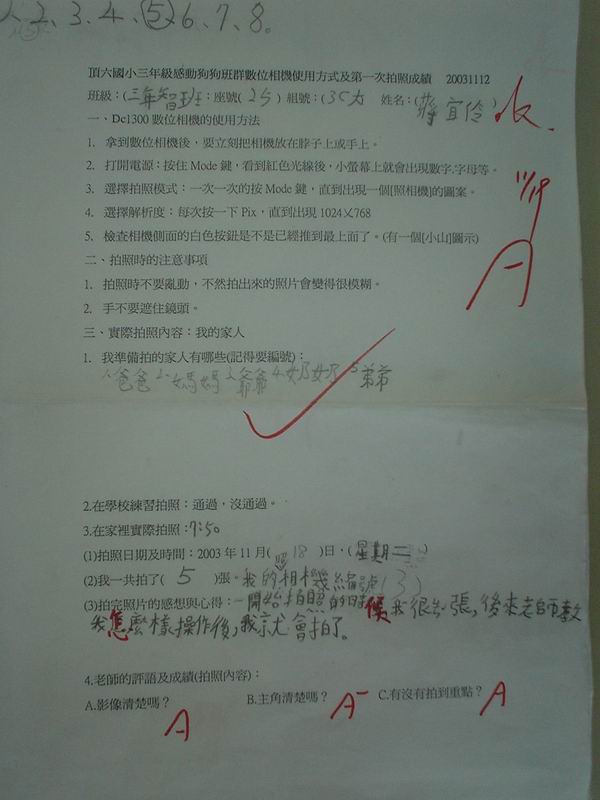 2、3、4、5、6、7、8。
頂六國小三年級感動狗狗班群數位相機使用方式及第一次拍照成績 20031112
班級：(三年智班；座號(25) 組號：( ) 姓名：(蔣宜伶)
一、Dc1300 數位相機的使用方法
1. 拿到數位相機後，要立刻把相機放在脖子上或手上。
2. 打開電源：按住 Mode 鍵，看到紅色光線後，小螢幕上就會出現數字.字母等。
11/19
3. 選擇拍照模式：一次一次的按 Mode 鍵，直到出現一個[照相機]的圖案。
4. 選擇解析度：每次按一下 Pix，直到出現 1024×768
5. 檢查相機側面的白色按鈕是不是已經推到最上面了。(有一個[小山]圖示)
A-
二、拍照時的注意事項
1. 拍照時不要亂動，不然拍出來的照片會變得很模糊。
2. 手不要遮住鏡頭。
三、實際拍照內容：我的家人
1. 我準備拍的家人有哪些(記得要編號)：
1.爸爸 2.媽媽 3.爺爺 4.奶奶 5弟弟
2.在學校練習拍照：通過，沒通過。
3.在家裡實際拍照：7:50
(1)拍照日期及時間：2003 年 11 月( 18 )日、(星期二)
(2)我一共拍了( 5 )張。我的照相機編號(3)
(3)拍完照片的感想與心得：一開始拍照的時候我很緊張，後來老師教
我怎麼樣操作後，我就會拍了。
4.老師的評語及成績(拍照內容)：
A.影像清楚嗎？ B.主角清楚嗎？ C.有沒有拍到重點？
A A- A